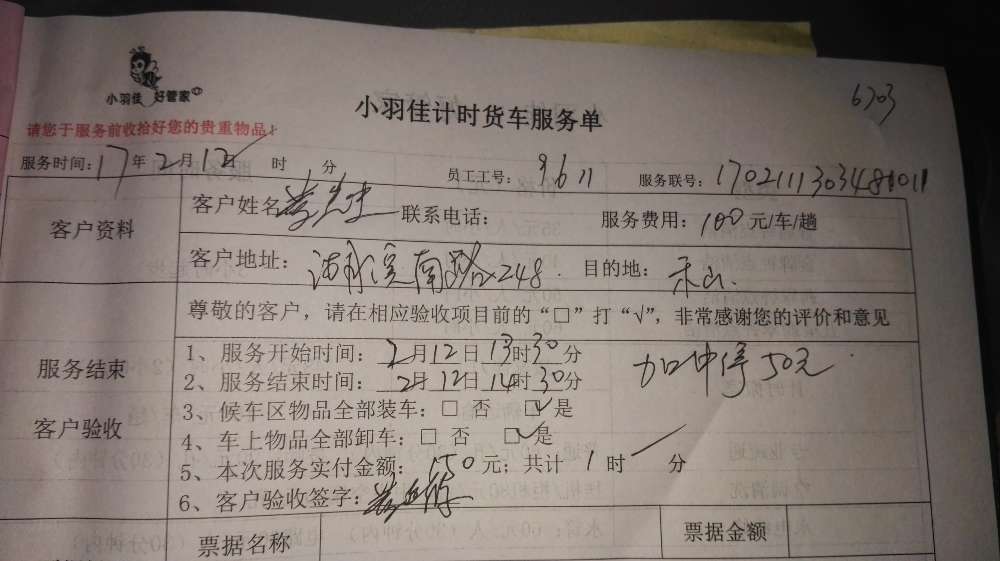 小羽佳 好管家
小羽佳计时货车服务单
6703
请您于服务前收拾好您的贵重物品！
服务时间：17年2月12日 时 分 员工工号：9611 服务联号：170211130348 1011
客户资料
客户姓名 先生 联系电话： 服务费用：100元/车/趟
客户地址：湖滨南路248 目的地：禾山
尊敬的客户，请在相应验收项目前的“□”打“√”，非常感谢您的评价和意见
服务结束
客户验收
1、服务开始时间：2月12日13时30分
加中停50元
2、服务结束时间：2月12日14时30分
3、候车区物品全部装车：□ 否 □√是
4、车上物品全部卸车：□ 否 □√是
5、本次服务实付金额：150元；共计1时 分
6、客户验收签字：
票据名称 票据金额